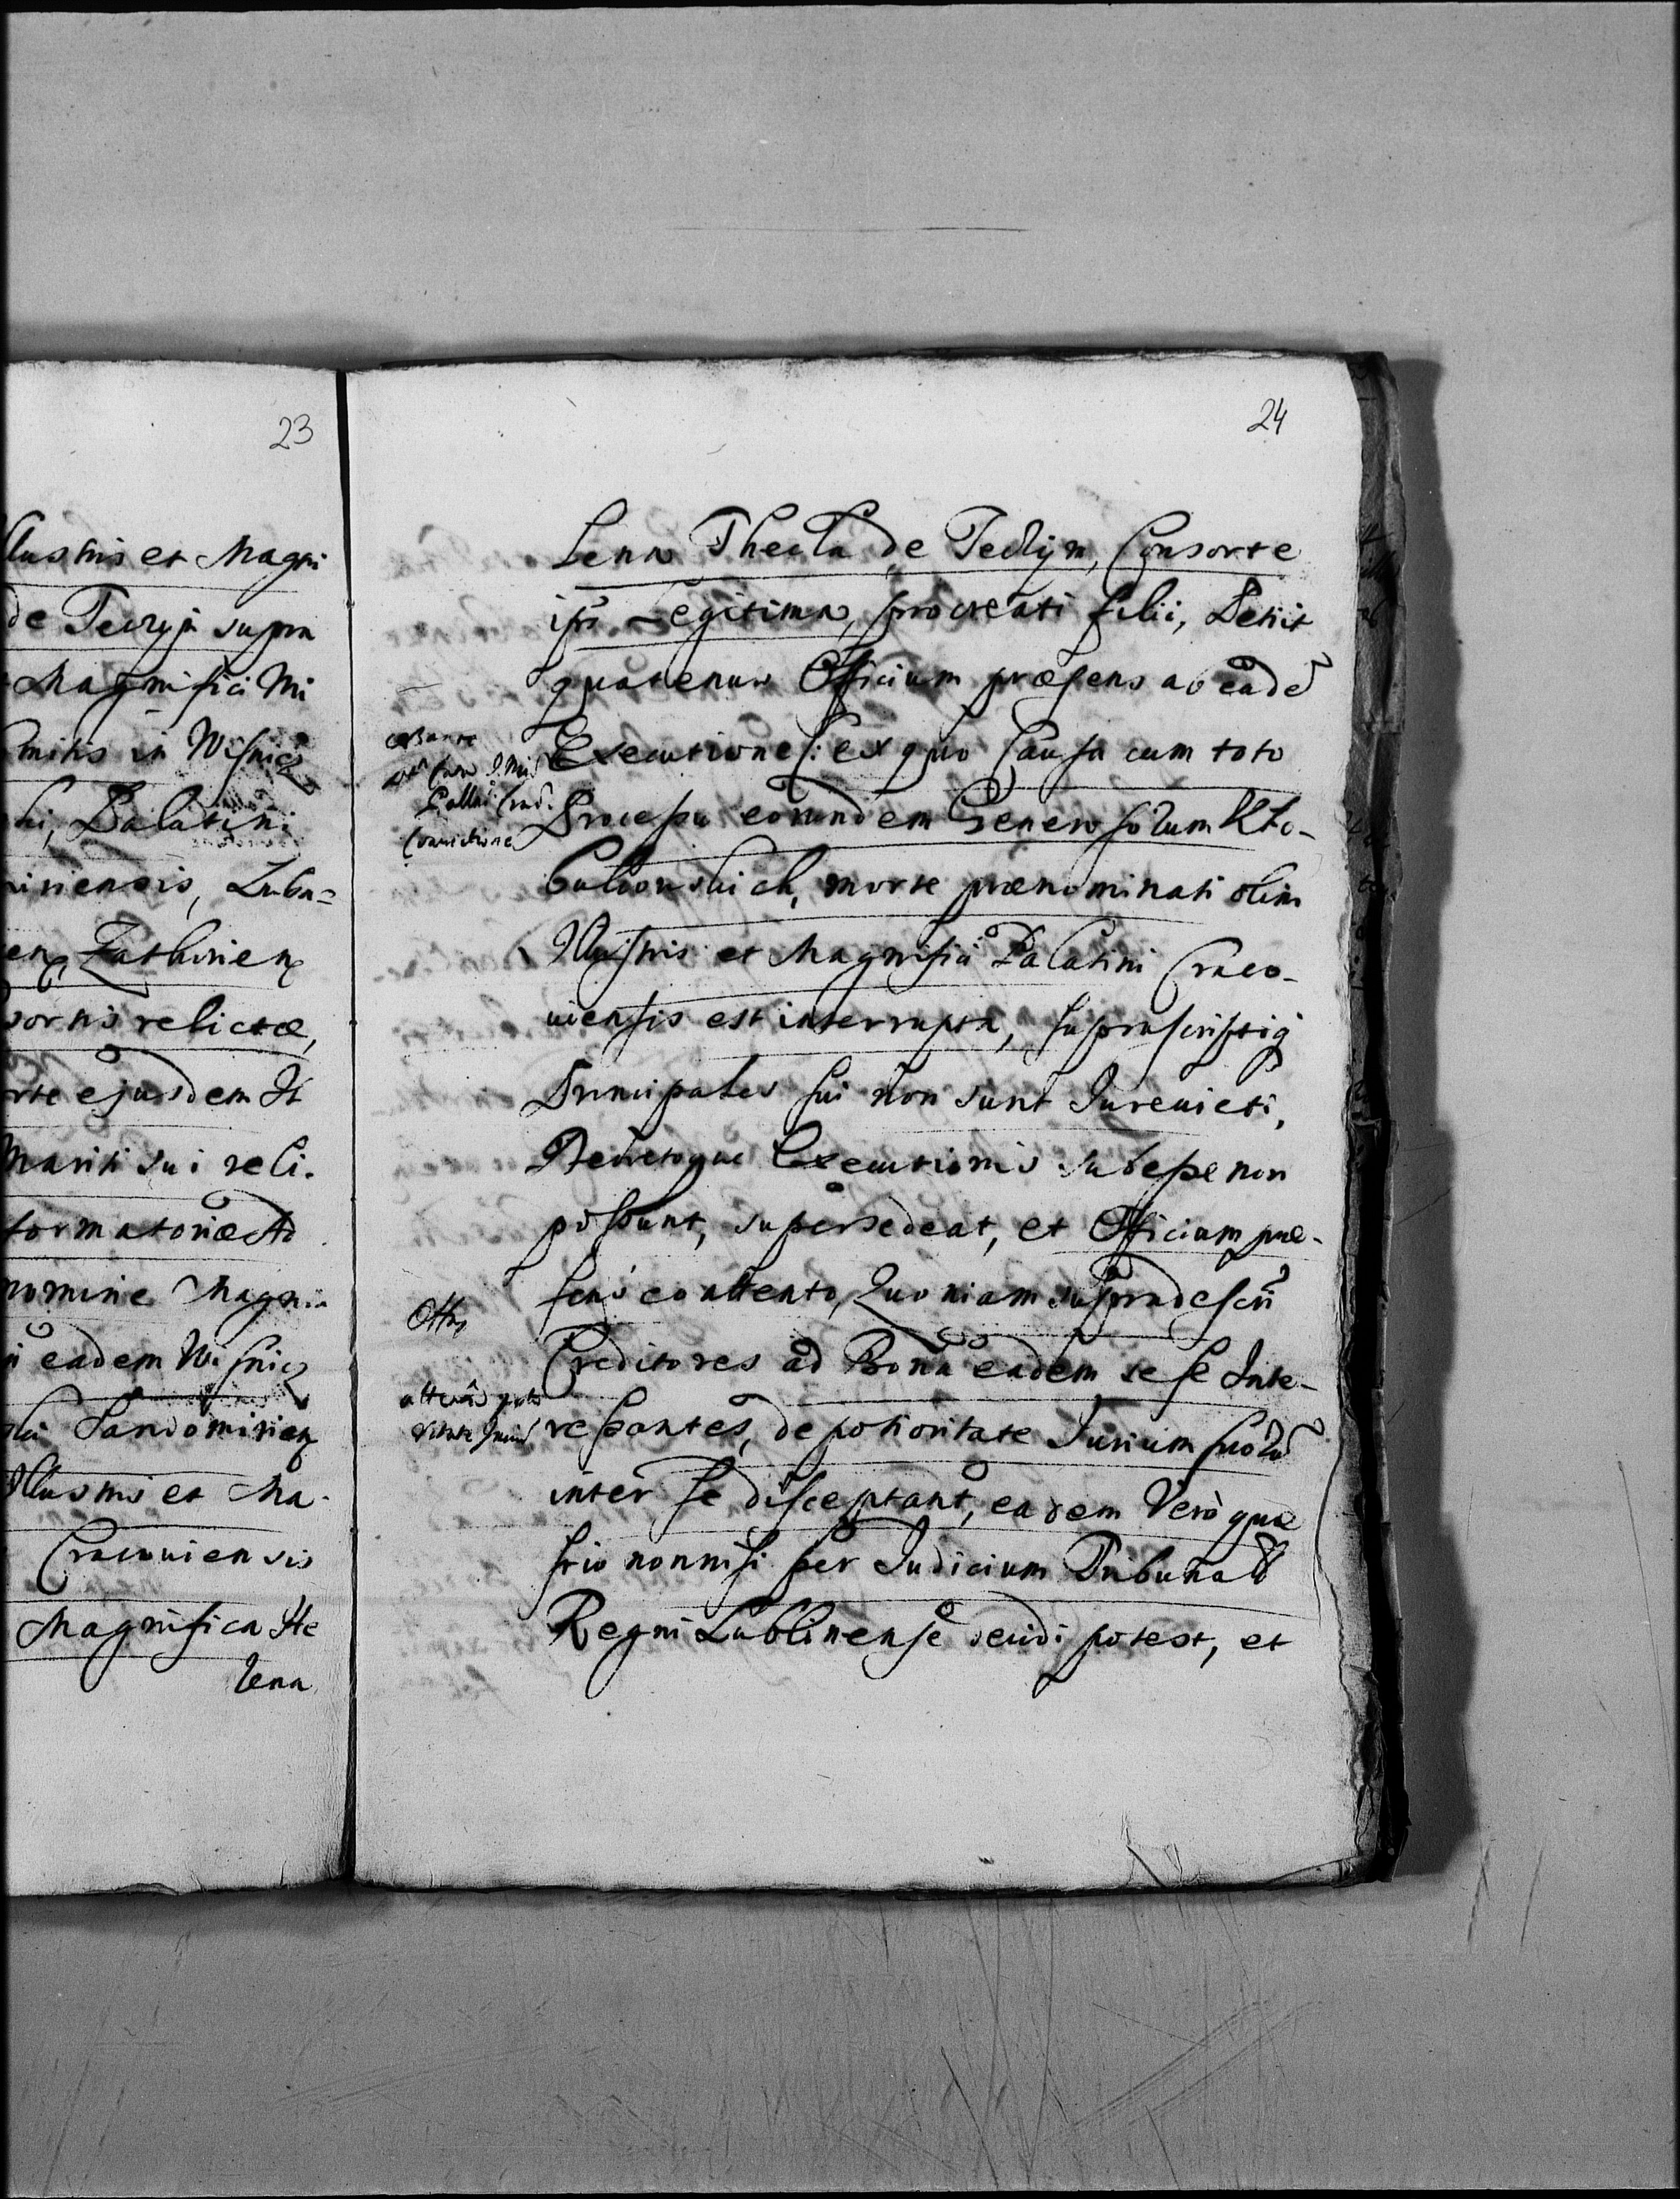 23
llustris et Magni
de Teczyn supra
Magnifici Mi
Comitis in Wisnicz
ski, Palatini
niriensis, Luba=
en Zathorien
sortis relictæ,
rte ejusdem Il
Mariti sui reli.
formatoriæ
nomine Magni
eadem Wisnicz
ski Sandomirien
Illustris et Ma.
Cracouiensis
Magnifica He
lena
24
Lena Thecla de Teczyn, Consorte
ips Legitima, procreati filii, Petiit
quatenus Officium præsens ab eadē
Executione (: ex quo Causa cum toto
Processu eorundem Generosorum Kło-
bukowskich, morte prænominati olim
Illustris et Magnifici Palatini Craco-
uiensis est interrupta, suprascriptiq
Principales sui non sunt Jureuicti,
Decretoque Executionis subesse non
possunt, supersedeat, et Officium præ-
sens eo attento, Quoniam supradescri
Creditores ad Bona eadem sese Inte-
ressantes, de potioritate Jurium suorū
inter se disceptant, ea rem Verò quæ
stio nonnisi per Judicium Tribunal
Regni Lublinense decidi potest, et
cessante
Pallni Crac.
Conuictione